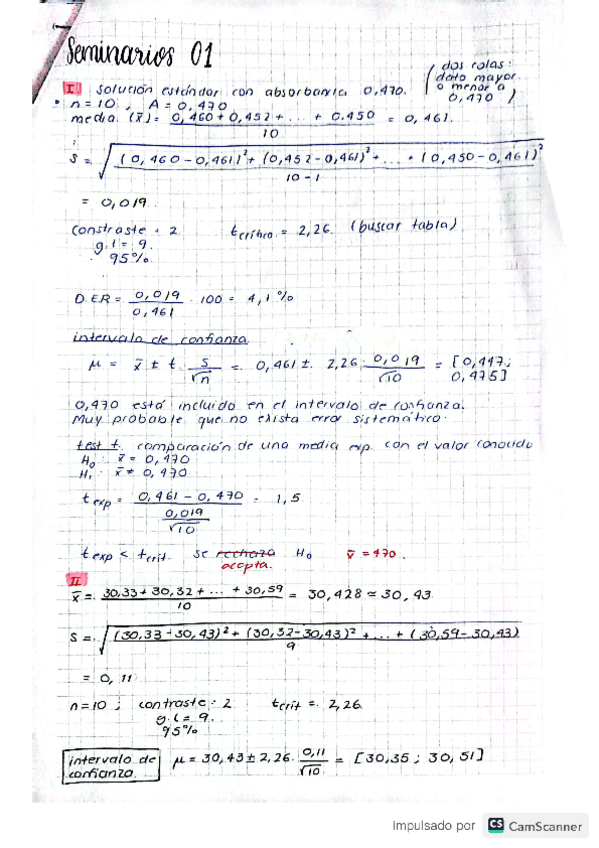 Seminarios 01
I solución estándar con absorbancia 0,470.
(dos colas: dato mayor o menor a 0,470)
• n=10 ; A = 0,470
media (x̄) = 0,460 + 0,452 + ... + 0.450 / 10 = 0,461.
S = √ (0,460 - 0,461)² + (0,452 - 0,461)² + ... + (0,450 - 0,461)² / 10 - 1
= 0,019.
Constraste · 2 tcrítico = 2,26. (buscar tabla)
g.l = 9.
95%.
D.ER = 0,019 / 0,461 · 100 = 4,1%
intervalo de confianza.
μ = x̄ ± t · S / √n = 0,461 ± 2,26 · 0,019 / √10 = [0,447; 0,475]
0,470 está incluido en el intervalo de confianza.
Muy probable que no exista error sistemático.
test t. comparación de una media exp. con el valor conocido
H₀ : x̄ = 0,470
H₁ : x̄ ≠ 0,470
t exp = 0,461 - 0,470 / 0,019 / √10 = 1,5
t exp < t crit. se rechaza acepta. H₀ x̄ = 470.
II
x̄ = 30,33 + 30,32 + ... + 30,59 / 10 = 30,428 ≃ 30,43
S = √ (30,33 - 30,43)² + (30,32 - 30,43)² + ... + (30,59 - 30,43) / 9
= 0,11
n=10 ; contraste : 2 tcrit = 2,26
g.l = 9.
95%
intervalo de confianza μ = 30,43 ± 2,26 · 0,11 / √10 = [30,35 ; 30,51]
Impulsado por CS CamScanner